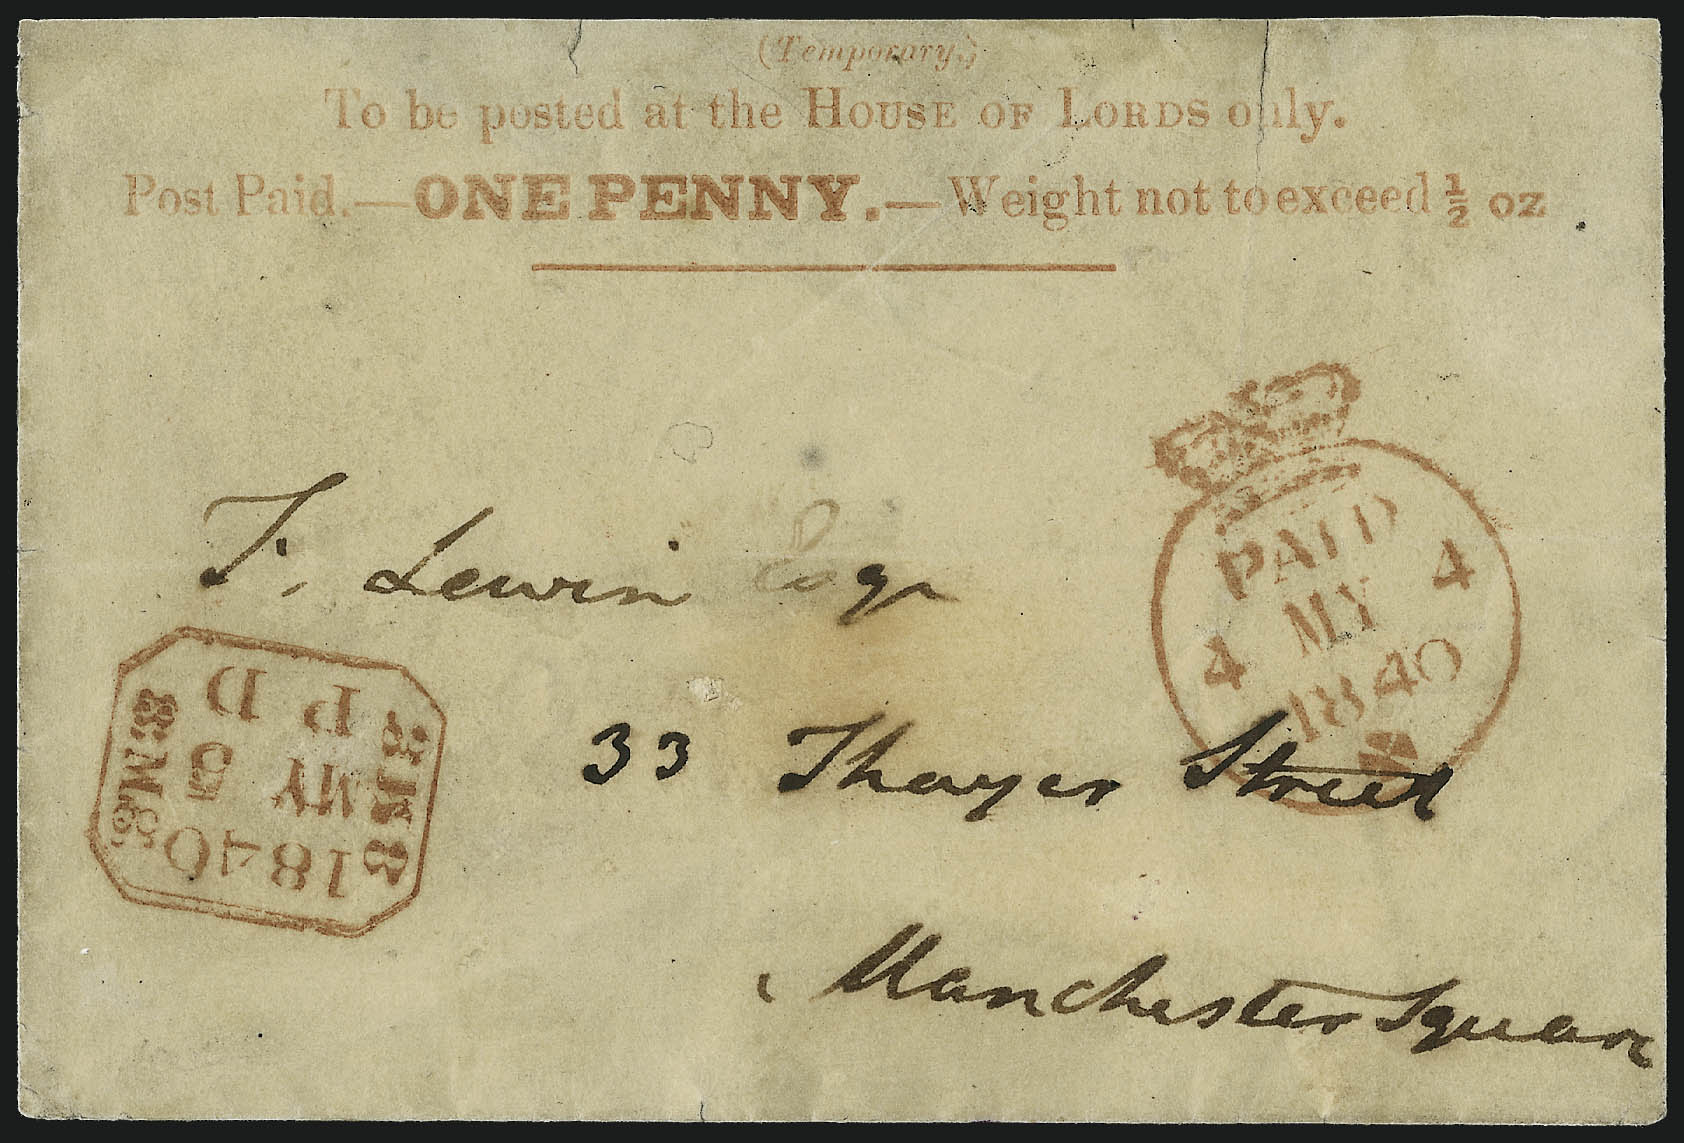 (Temporary.)
To be posted at the HOUSE OF LORDS only.
Post Paid.—ONE PENNY.—Weight not to exceed ½ oz
PAID
4 MY 4
1840
A
T. Lewin Esqr
33 Thayer Street
Manchester Square
1840
MY 5
P D